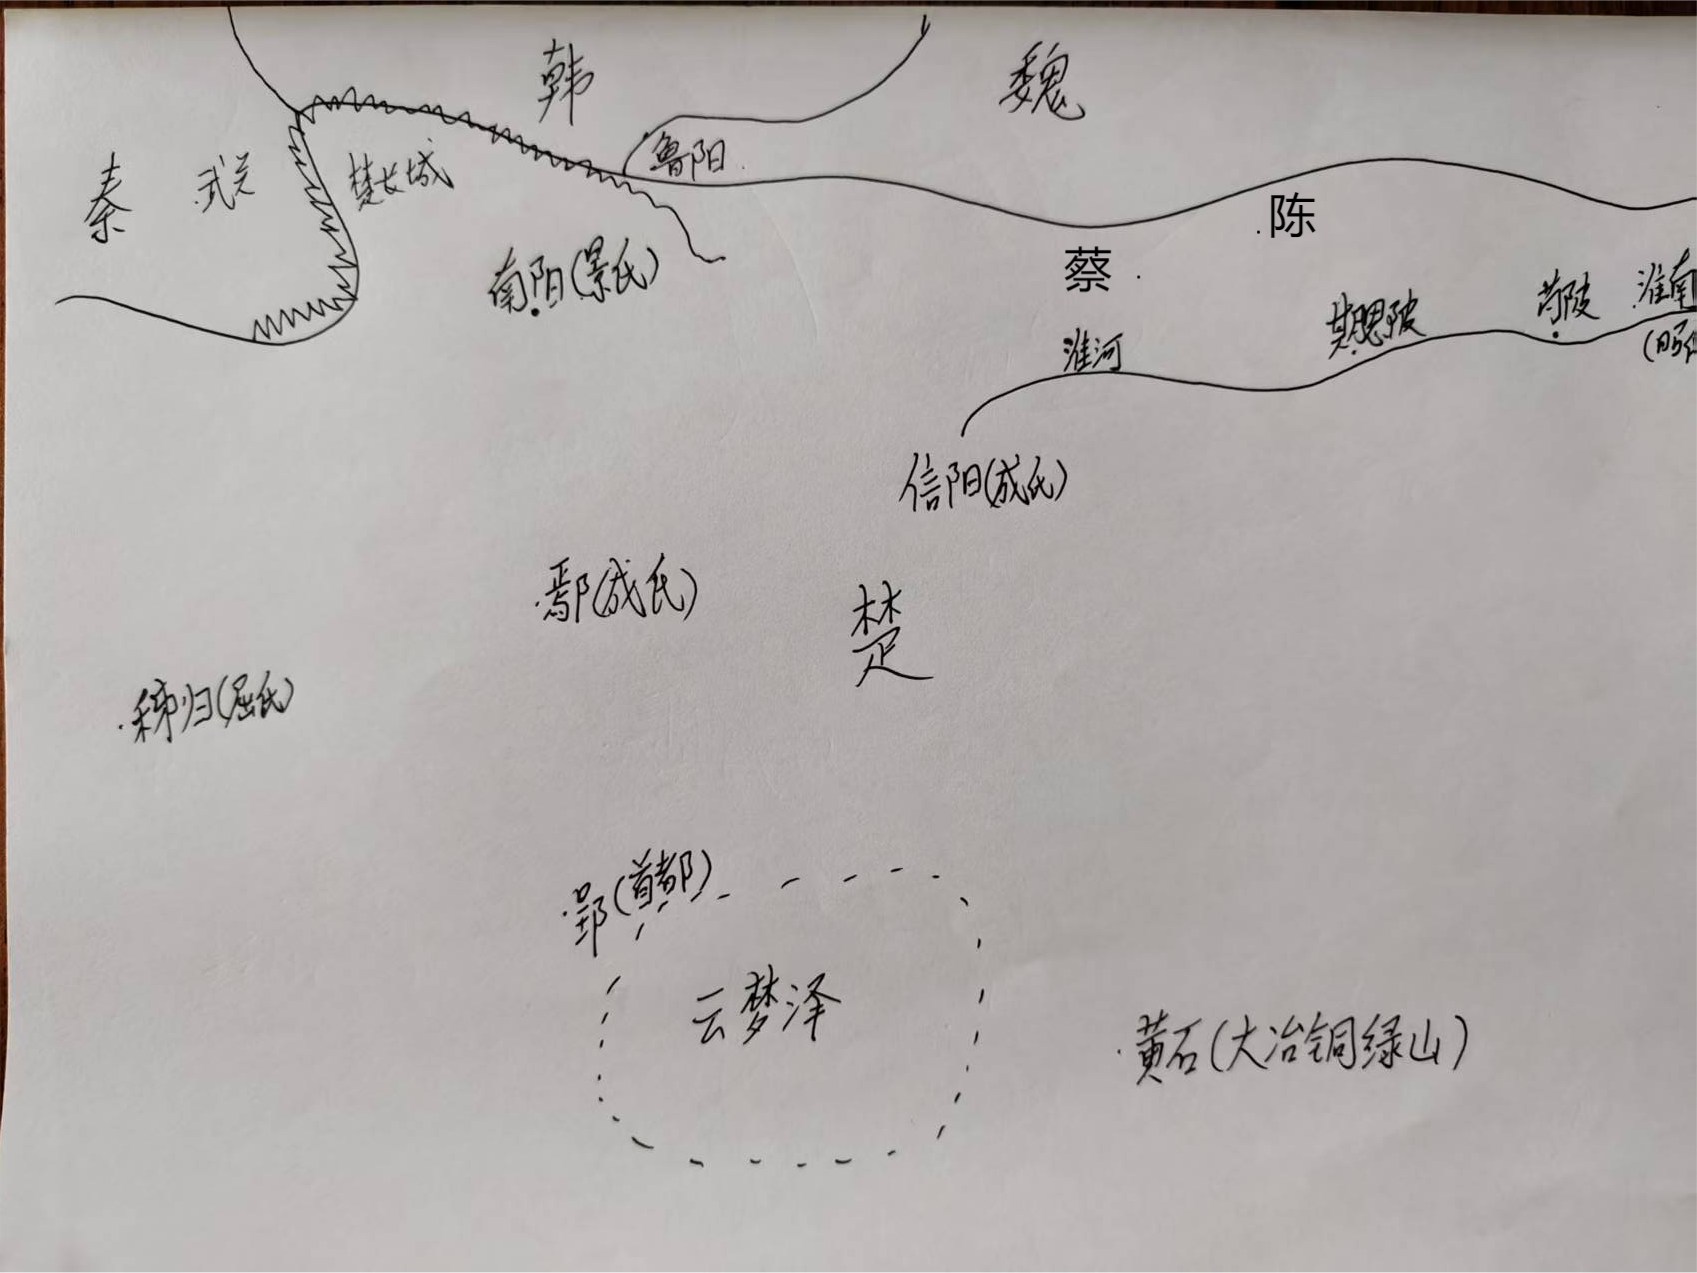 韩
魏
秦
武关
楚长城
鲁阳
陈
蔡
南阳(景氏)
期思陂
芍陂
淮南
(昭
淮河
信阳(成氏)
鄢(成氏)
楚
秭归(屈氏)
郢(首都)
云梦泽
黄石(大冶铜绿山)